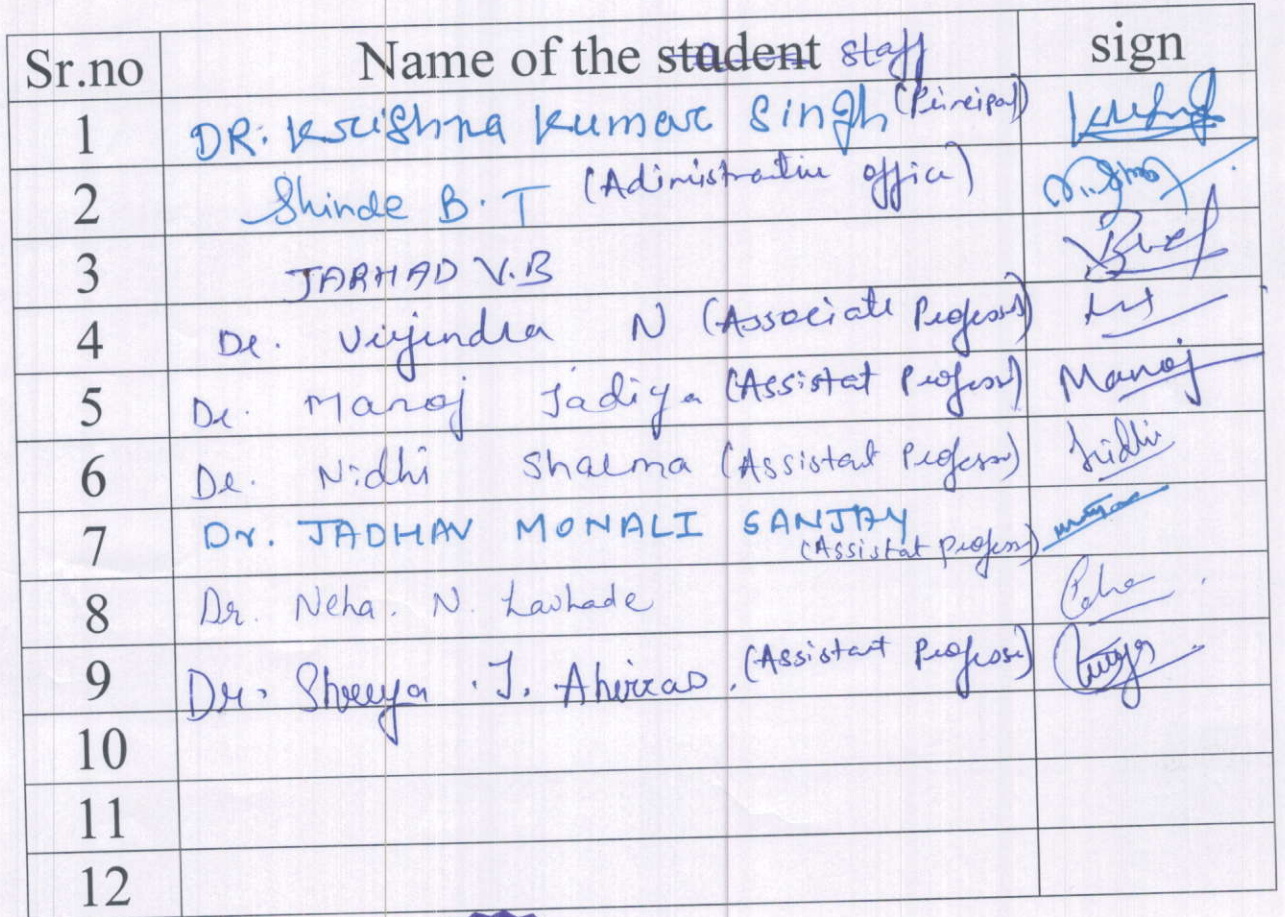 Sr.no Name of the student staff sign
1 DR. Krishna Kumar Singh (Principal)
2 Shinde B. T (Adimistrative office)
3 JARHAD V.B
4 Dr. Virjendra N (Associate Professor)
5 Dr. Manoj Jadiya (Assistat Professor) Manoj
6 Dr. Nidhi Sharma (Assistant Professor) Nidhi
7 Dr. JADHAV MONALI SANJAY
(Assistat Professor)
8 Dr. Neha. N. Lavhade
9 Dr. Shreeya . J. Ahirrao. (Assistant Professor)
10
11
12